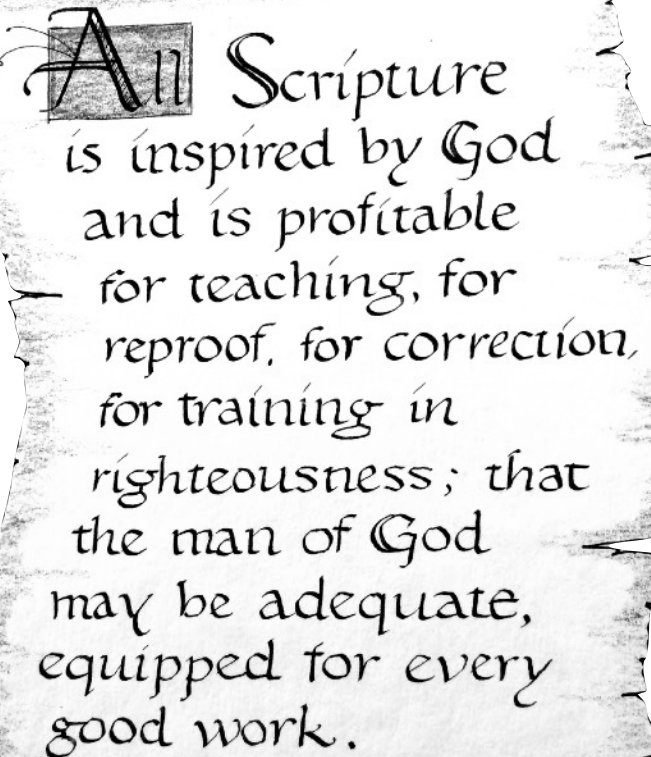 All Scripture
is inspired by God
and is profitable
for teaching, for
reproof, for correction,
for training in
righteousness; that
the man of God
may be adequate,
equipped for every
good work.